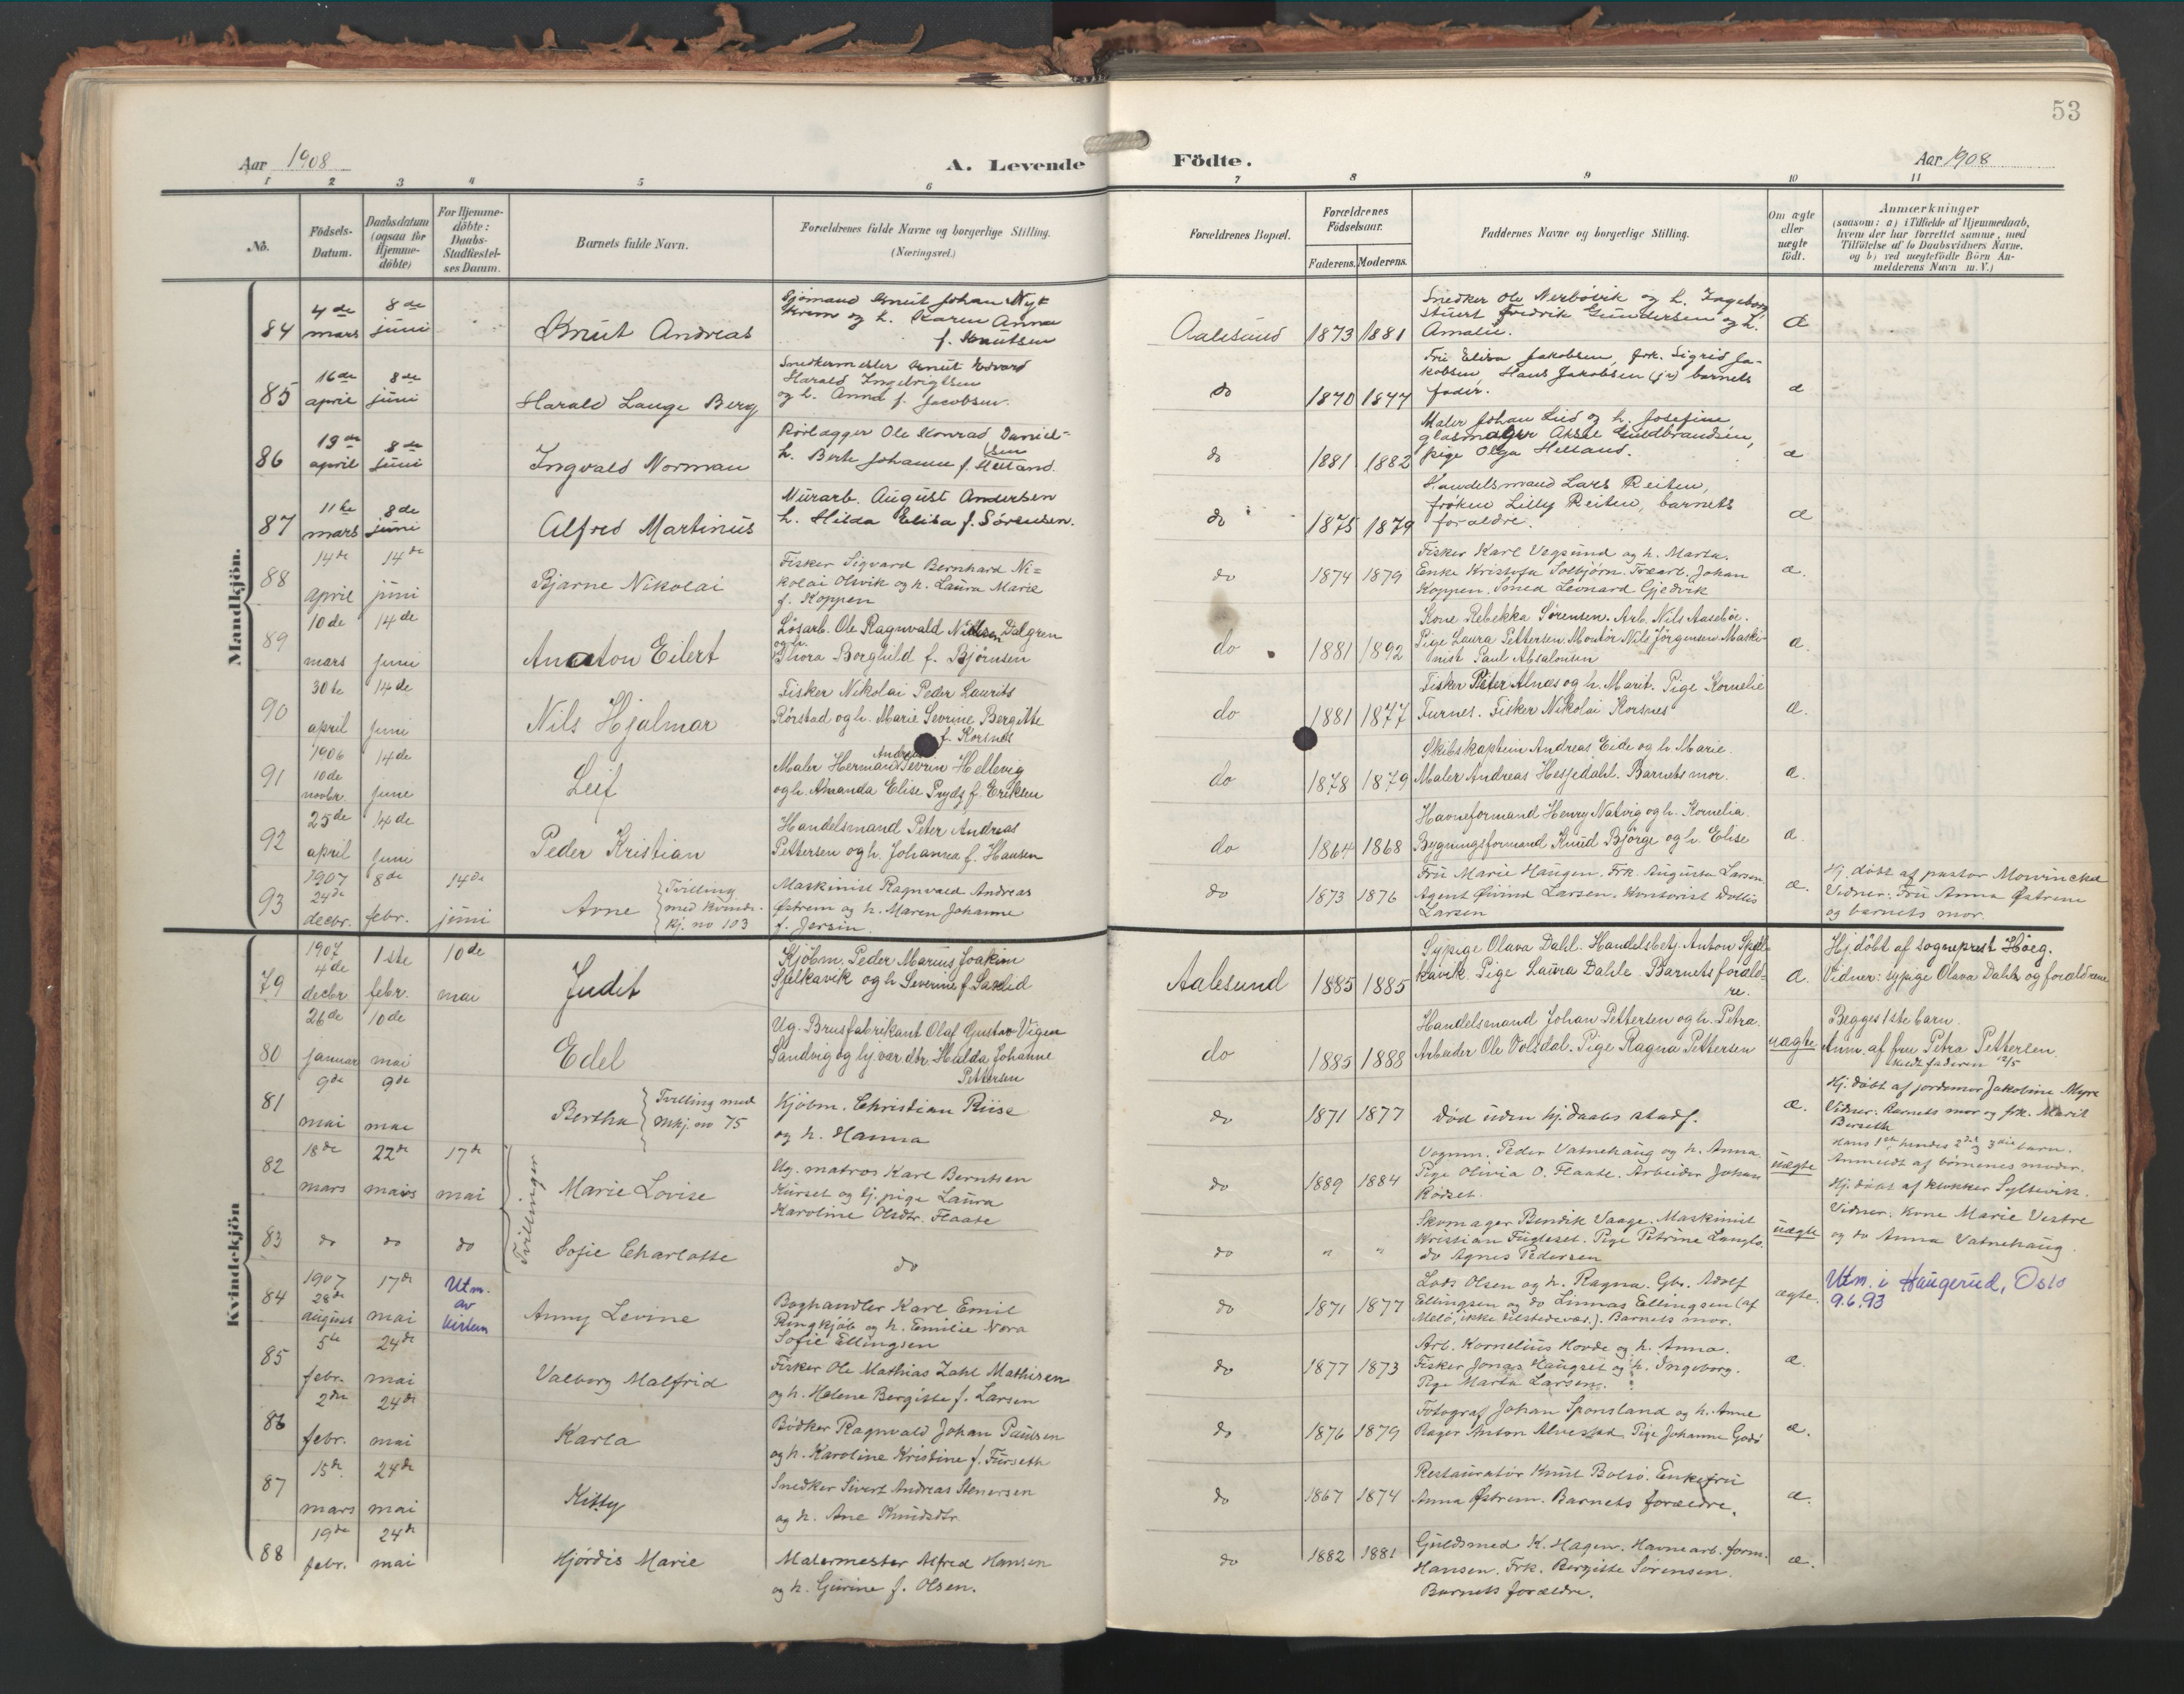 53
Aar 1908
A. Levende Födte.
Aar 1908
1 2 3 4 5 6 7 8 9 10 11
No.
Födsels-
Datum.
Daabsdatum
(ogsaa for
Hjemme-
döbte)
For Hjemme-
döbte:
Daabs-
Stadfæstel-
ses Datum.
Barnets fulde Navn.
Forældrenes fulde Navne og borgerlige Stilling.
(Næringsvei.)
Forældrenes Bopæl.
Forældrenes
Födselsaar.
Faderens. Moderens.
Faddernes Navne og borgerlige Stilling.
Om ægte
eller
uægte
födt.
Anmærkninger
(saasom: a) i Tilfælde af Hjemmedaab,
hvem der har forrettet samme, med
Tilföielse af to Daabsvidners Navne.
og b) ved uægtefödte Börn An-
melderens Navn m. V.)
Mandkjön.
84
4de
mars
8de
juni
Knut Andreas
Sjömand Knut Johan Nyt
og h. Karen Anna
f. Knutsen
Aalesund
1873 1881
Snedker Ole Nerbövik og h. Ingeborg
Stuert Fredrik Gundersen og h.
Amalie.
æ
85
16de
april
8de
juni
Harald Lange Berg
Snedkermester Knut Edvard
Harald Ingebrigtsen
og h. Anna f. Jacobsen.
do
1870 1877
Fru Elisa Jakobsen, frk. Sigrid Ja-
kobsen Hans Jakobsen (jr) barnets
fader.
æ
86
19de
april
8de
juni
Ingvald Norman
Rörlægger Ole Konrad Daniel-
sen
h. Berte Johanne f. Helland.
do
1881 1882
Maler Johan Lied og h. Josefine
glasmager Aksel Guldbrandsen,
pige Olga Helland.
æ
87
11te
mars
8de
juni
Alfred Martinus
Murarb. August Andersen
h. Hilda Elisa f. Sörensen.
do
1875 1879
Handelsmand Lars Reiten,
fröken Lilly Reiten, barnets
forældre.
æ
88
14de
april
14de
juni
Bjarne Nikolai
Fisker Sigvard Bernhard Ni=
kolai Olsvik og h. Laura Marie
f. Koppen
do
1874 1879
Fisker Karl Vegsund og h. Marta.
Enke Kristofa Solbjörn. Træarb. Johan
Koppen. Smed Leonard Gjedvik
æ.
89
10de
mars
14de
juni
Anaton Eilert
Lösarb. Ole Ragnvald Nilsen Dalgren
og h.
Thora Borghild f. Björnsen
do
1881 1892
Kone Rebekka Sörensen. Arb. Nils Aaseböe.
Pige Laura Pettersen. Montör Nils Jörgensen. Maski-
nist Paul Absalonsen
æ.
90
30te
april
14de
juni
Nils Hjalmar
Fisker Nikolai Peder Laurits
Rörstad og h. Marie Sevrine Bergitte
f. Korsnes
do
1881 1877
Fisker Peter Alnæs og h. Marit. Pige Kornelie
Furnes. Fisker Nikolai Korsnes
æ.
91
1906
10de
novbr.
14de
juni
Leif
Andreas
Maler Herman Sevrin Hellevig
og h. Amanda Elise Prydz f. Eriksen
do
1878 1879
Skibskaptein Andreas Eide og h. Marie.
Maler Andreas Hessedahl. Barnets mor.
æ.
92
25de
april
14de
juni
Peder Kristian
Handelsmand Peter Andreas
Pettersen og h. Johanna f. Hansen
do
1864 1868
Havneformand Henry Natvig og h. Kornelia.
Bygningsformand Knud Björge og h. Elise
æ.
93
1907
24de
decbr.
8de
febr.
14de
juni
Arne
Tvilling
med kvinde-
kj. no 103
Maskinist Ragnvald Andreas
Østrem og h. Maren Johanne
f. Jersin.
do
1873 1876
Fru Marie Haugen. Frk. Augusta Larsen
Agent Øivind Larsen. Kontorist Dottis
Larsen
æ.
Hj. döbt af pastor Mowinckel
Vidner: Fru Anna Østrem
og barnets mor.
Kvindekjön
79
1907
4de
decbr
1ste
febr.
10de
mai
Judit
Kjöbm. Peder Marius Joakim
Spilkavik og h Severine f. Saxlid
Aalesund
1885 1885
Sypige Olava Dahl. Handelsbetj. Anton Spil-
kavik. Pige Laura Dahle. Barnets foræld-
re.
æ.
Hj. döbt af sogneprest Höeg.
Vidner: sypige Olava Dahl og forældrene
80
26de
januar
10de
mai
Edel
Ug. Brusfabrikant Olaf Gustav Vigen
Sandvig og hj.vær. dtr. Hulda Johanne
Pettersen
do
1885 1888
Handelsmand Johan Pettersen og h. Petra.
Arbeider Ole Volsdal. Pige Ragna Pettersen
uægte
Begges 1ste barn.
Anm. af fru Petra Pettersen.
12/5
81
9de
mai
9de
mai
Bertha
Tvilling med
mkj. no 75
Kjöbm. Christian Riise
og h. Hanna
do
1871 1877
Död uden hj.daabs stadf.
æ.
Hj. döbt af jordemor Jakobine Myre
Vidner: Barnets mor og frk. Marit
Berseth
82
18de
mars
22de
mars
17de
mai
Tvillinger
Marie Lovise
Ug. matros Karl Berntsen
Kurset og hj. pige Laura
Karoline Olsdtr. Flaate
do
1889 1884
Vognm. Peder Vatnehaug og h. Anna.
Pige Olivia O. Flaate. Arbeider Johan
Rödset.
uægte
Hans 1ste hendes 2det og 3die barn.
Anmeldt af börnenes moder.
Hj. döbt af klokker Syltevik.
83
do
do
do
Sofie Charlotte
do
do
" "
Skomager Bendik Vaage. Maskinist
Kristian Fugleset. Pige Petrine Langlo.
do Agnes Pedersen
uægte
Vidner: Kone Marie Vestre
og do Anna Vatnehaug.
84
1907
28de
august
17de
mai
Utm.
av
kirken
Anny Levine
Boghandler Karl Emil
Ringkjöb og h. Emilie Nora
Sofie Ellingsen
do
1871 1877
Lods Olsen og h. Ragna. Gbr. Adolf
Ellingsen og do Linnas Ellingsen (af
Melö, ikke tilstedevær.). Barnets mor.
ægte.
Utm. i Haugerud, Oslo
9.6.93
85
5te
febr.
24de
mai
Valborg Malfrid
Fisker Ole Mathias Zahl Mathisen
og h. Helene Bergitte f. Larsen
do
1877 1873
Arb. Kornelius Hovde og h. Anna.
Fisker Jonas Haugset og h. Ingeborg.
Pige Marta Larsen.
æ.
86
2den
febr.
24de
mai
Karla
Bödker Ragnvald Johan Paulsen
og h. Karoline Kristine f. Furseth
do
1876 1879
Fotograf Johan Sponsland og h. Anne
Bager Anton Alvestad. Pige Johanne Godö
æ.
87
15de
mars
24de
mai
Kitty
Snedker Sivert Andreas Stenersen
og h. Ane Knudsdtr.
do
1867 1874
Restauratör Knut Bolsö. Enkefru
Anna Østrem. Barnets forældre.
æ.
88
19de
febr.
24de
mai
Hjördis Marie
Malermester Alfred Hansen
og h. Gurine f. Olsen.
do
1882 1881
Guldsmed K. Hagen. Havnearb. form.
Hansen. Frk. Bergitte Sörensen.
Barnets forældre.
æ.